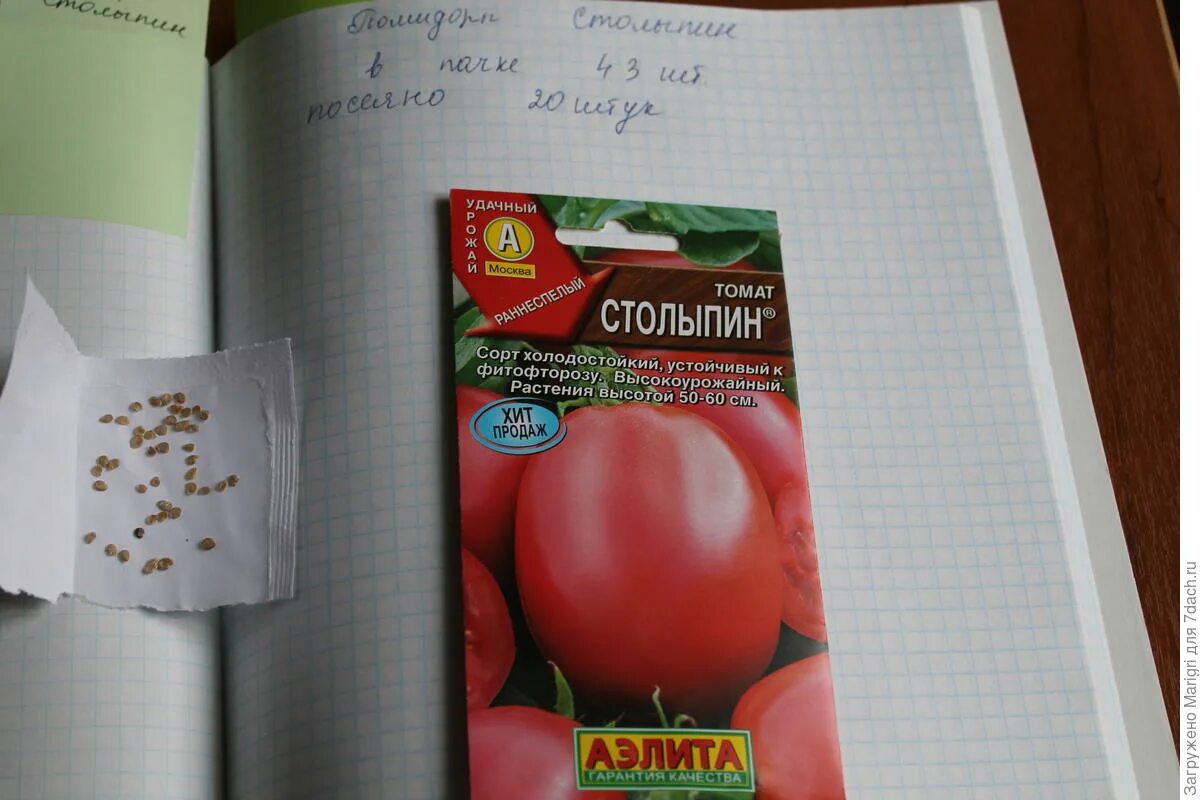 Столыпин
Помидоры Столыпин
в пачке 43 шт.
посеяно 20 штук
УДАЧНЫЙ
УРОЖАЙ
А
Москва
РАННЕСПЕЛЫЙ
ТОМАТ
СТОЛЫПИН®
Сорт холодостойкий, устойчивый к
фитофторозу. Высокоурожайный.
Растения высотой 50-60 см.
ХИТ
ПРОДАЖ
АЭЛИТА
ГАРАНТИЯ КАЧЕСТВА
Загружено Marigri для 7dach.ru